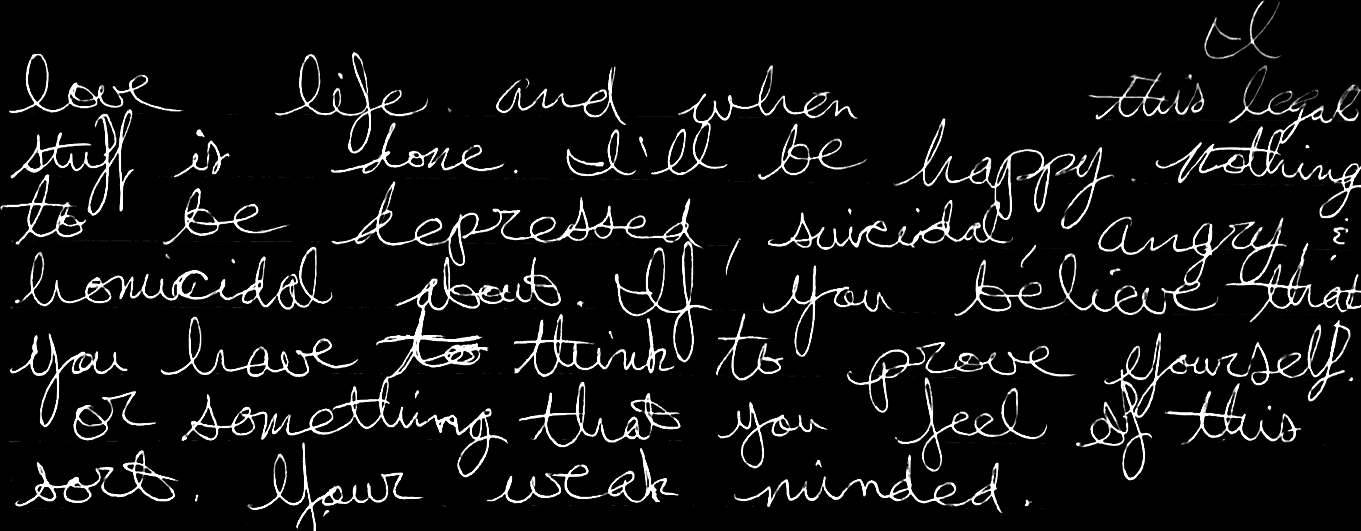 I
love life. and when this legal
stuff is done. I'll be happy. Nothing
to be depressed, suicidal, angry, &
homicidal about. If you believe that
you have to think to prove yourself.
or something that you feel of this
sort. Your weak minded.